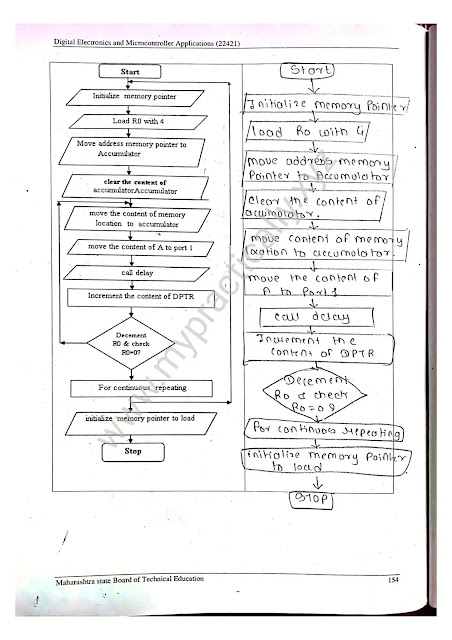 Digital Electronics and Microcontroller Applications (22421)
Start
Initialize memory pointer
Load R0 with 4
Move address memory pointer to
Accumulator
clear the content of
accumulatorAccumulator
move the content of memory
location to accumulator
move the content of A to port 1
call delay
Increment the content of DPTR
Decement
R0 & check
R0=0?
For continuous repeating
initialize memory pointer to load
Stop
Start
Initialize memory Pointer
load Ro with 4
move address memory
Pointer to Accumulator
clear the content of
accumulator.
move content of memory
location to accumulator.
move the content of
A to Port 1
call delay
Increment the
content of DPTR
Decement
Ro & check
Ro = 0 ?
For continuous repeating
initialize memory pointer
to load
STOP
www.mypractically.xyz
Maharashtra state Board of Technical Education
154